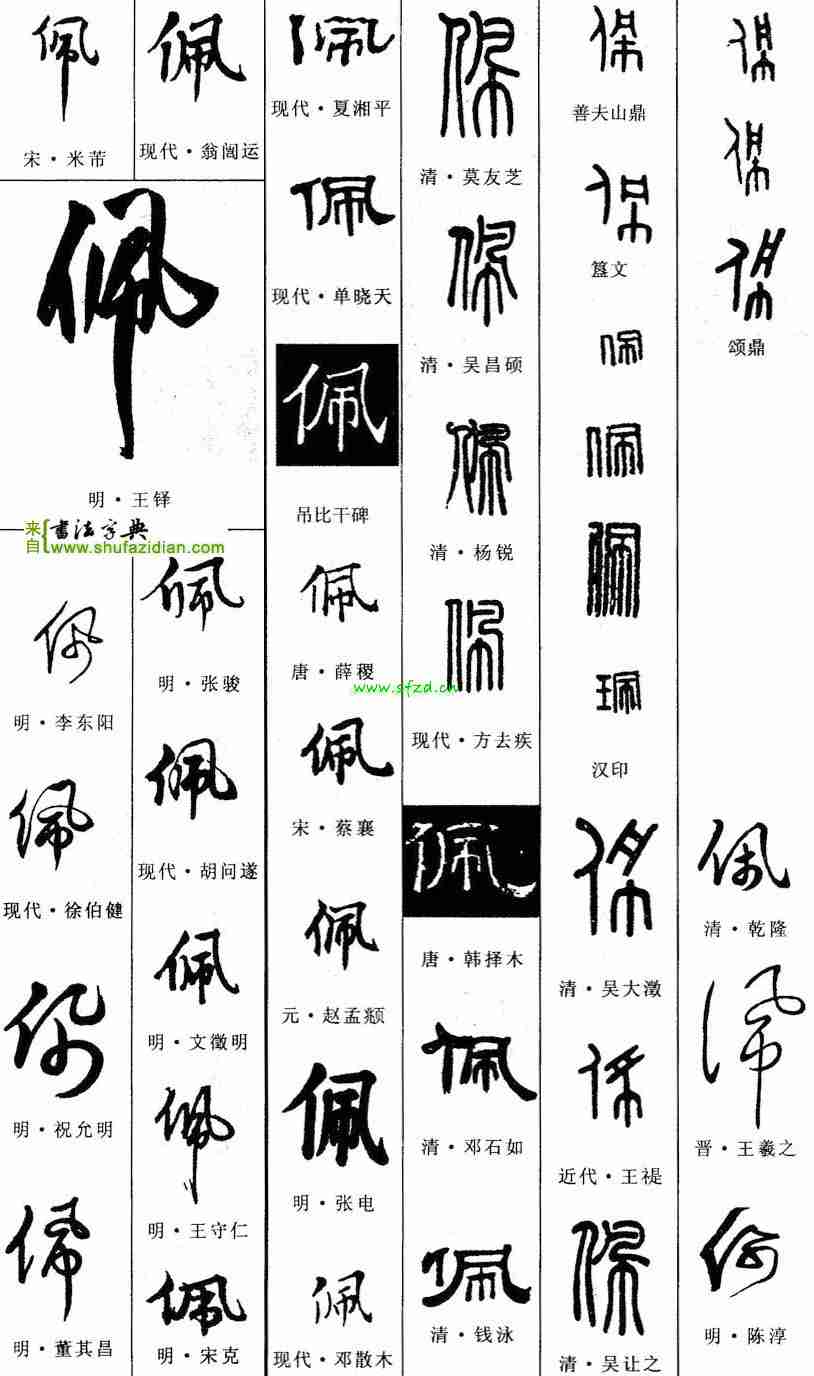 佩
宋・米芾
佩
现代・翁闿运
佩
明・王铎
来自{书法字典
www.shufazidian.com
佩
明・李东阳
佩
现代・徐伯健
佩
明・祝允明
佩
明・董其昌
佩
明・张骏
佩
现代・胡问遂
佩
明・文徵明
佩
明・王守仁
佩
明・宋克
佩
现代・夏湘平
佩
现代・单晓天
佩
吊比干碑
佩
唐・薛稷
www.sfzd.cn
佩
宋・蔡襄
佩
元・赵孟頫
佩
明・张电
佩
现代・邓散木
佩
清・莫友芝
佩
清・吴昌硕
佩
清・杨锐
佩
现代・方去疾
佩
唐・韩择木
佩
清・邓石如
佩
清・钱泳
佩
善夫山鼎
佩
簋文
佩
佩
佩
珮
汉印
佩
清・吴大澂
佩
近代・王禔
佩
清・吴让之
佩
佩
佩
颂鼎
佩
清・乾隆
佩
晋・王羲之
佩
明・陈淳